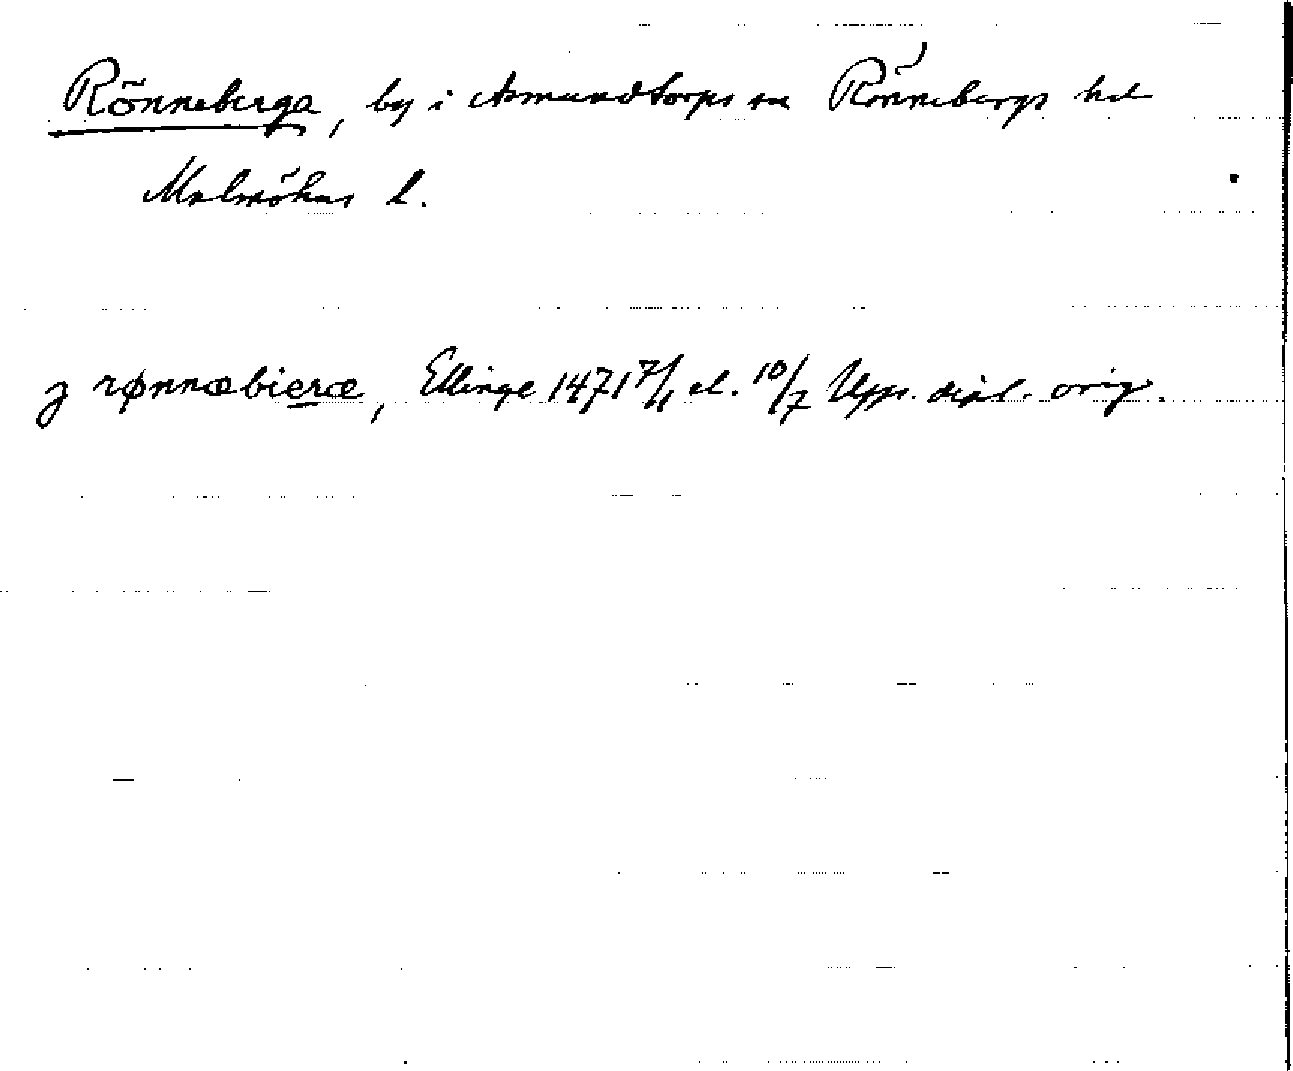 Rönneberga, by i Asmundtorps sn Rönnebergs hd
Malmöhus l.
j rønnæbieræ, Ellinge 1471 7/1 el. 10/7 Upps. dipl. orig.